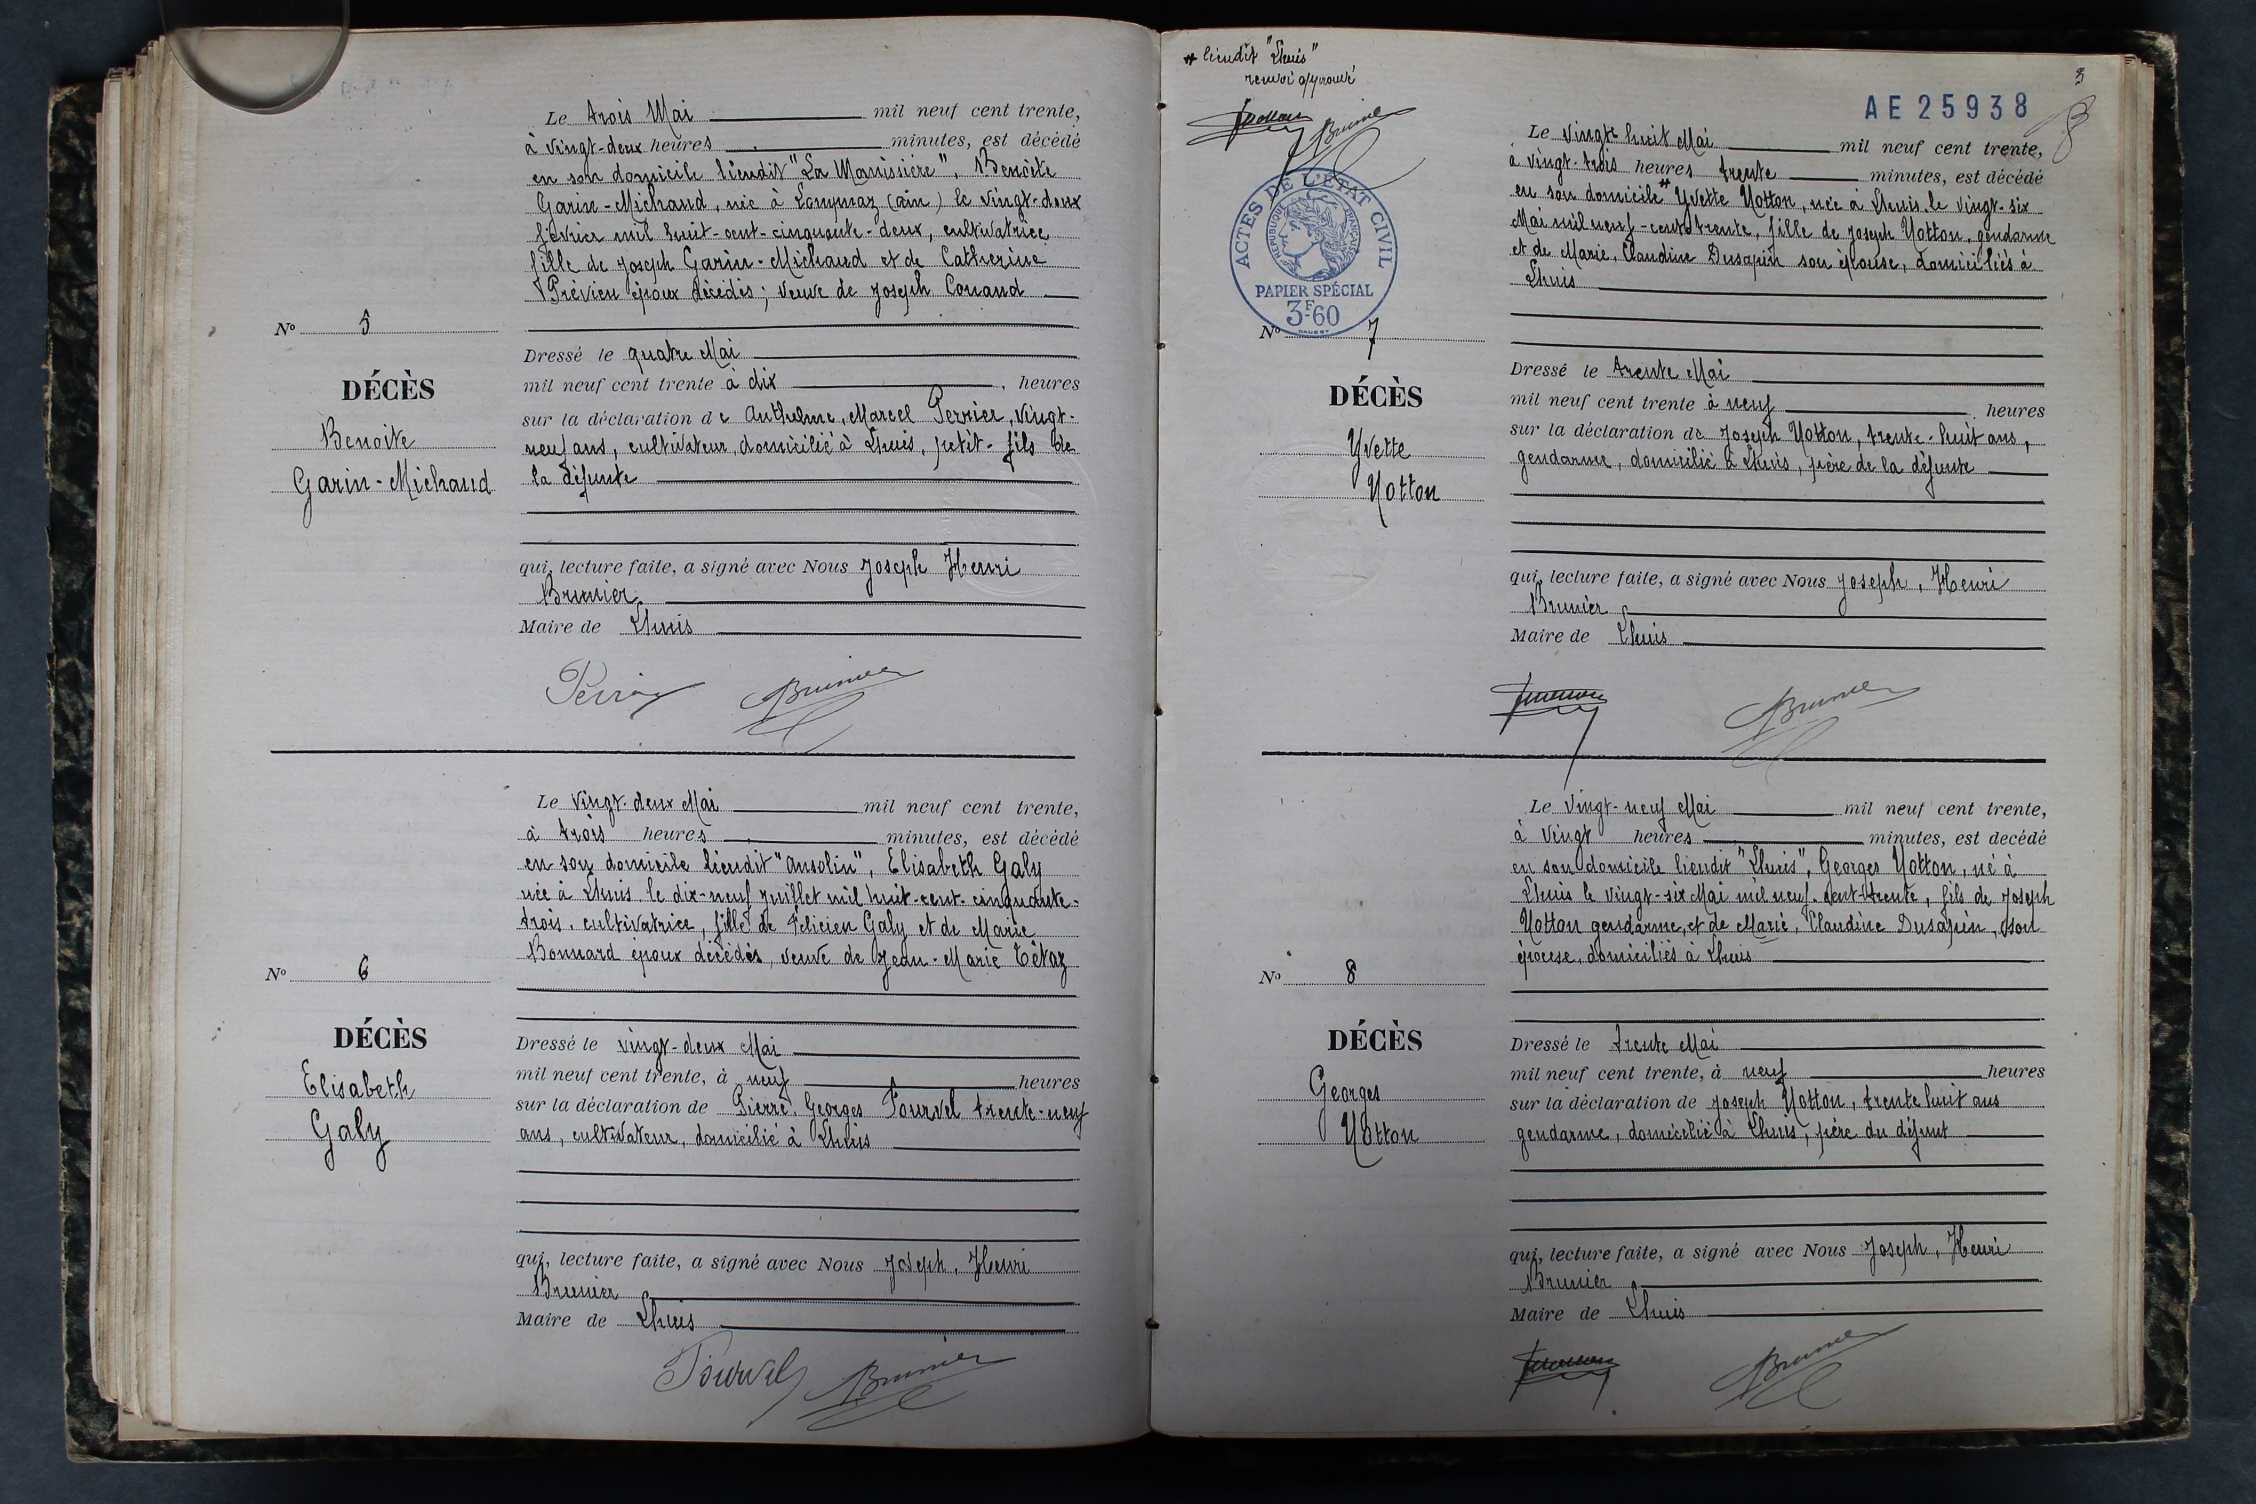 Le trois Mai mil neuf cent trente,
à vingt-deux heures minutes, est décédé
en son domicile lieudit "La Manissière", Benoîte
Garin-Michaud, née à Lompnaz (Ain) le vingt-deux
février mil huit-cent-cinquante-deux, cultivatrice
fille de Joseph Garin-Michaud et de Catherine
Prévieu époux décédés; veuve de Joseph Conand
Nº 5
DÉCÈS
Benoite
Garin-Michaud
Dressé le quatre Mai
mil neuf cent trente à dix heures
sur la déclaration de Anthelme, Marcel Perrier, vingt-
neuf ans, cultivateur, domicilié à Lhuis, petit-fils de
la défunte
qui, lecture faite, a signé avec Nous Joseph Henri
Brunier
Maire de Lhuis
Brunier
Le vingt-deux Mai mil neuf cent trente,
à trois heures minutes, est décédé
en son domicile lieudit "Ansolin", Elisabeth Galy
née à Lhuis le dix-neuf juillet mil huit-cent-cinquante-
trois, cultivatrice, fille de Félicien Galy et de Marie
Bonnard époux décédés, veuve de Jean-Marie Tétaz
Nº 6
DÉCÈS
Elisabeth
Galy
Dressé le vingt-deux Mai
mil neuf cent trente, à neuf heures
sur la déclaration de Pierre, Georges Pourvel trente-neuf
ans, cultivateur, domicilié à Lhuis
qui, lecture faite, a signé avec Nous Joseph, Henri
Brunier
Maire de Lhuis
Pourvel Brunier
* lieudit "Lhuis"
renvoi approuvé
Brunier
3
AE 25938
ACTES DE L'ETAT CIVIL
REPUBLIQUE FRANÇAISE
PAPIER SPÉCIAL
3F60
Le vingt huit Mai mil neuf cent trente,
à vingt-trois heures trente minutes, est décédé
en son domicile * Yvette Notton, née à Lhuis le vingt-six
Mai mil neuf-cent trente, fille de Joseph Notton, gendarme
et de Marie, Claudine Dusapin son épouse, domiciliés à
Lhuis
Nº 7
DÉCÈS
Yvette
Notton
Dressé le trente Mai
mil neuf cent trente à neuf heures
sur la déclaration de Joseph Notton, trente-huit ans,
gendarme, domicilié à Lhuis, père de la défunte
qui, lecture faite, a signé avec Nous Joseph, Henri
Brunier
Maire de Lhuis
Brunier
Le vingt-neuf Mai mil neuf cent trente,
à vingt heures minutes, est decédé
en son domicile lieudit "Lhuis", Georges Notton, né à
Lhuis le vingt-six Mai mil neuf-cent-trente, fils de Joseph
Notton gendarme, et de Marie, Claudine Dusapin, son
épouse, domiciliés à Lhuis
Nº 8
DÉCÈS
Georges
Notton
Dressé le trente Mai
mil neuf cent trente, à neuf heures
sur la déclaration de Joseph Notton, trente huit ans
gendarme, domicilié à Lhuis, père du défunt
qui, lecture faite, a signé avec Nous Joseph, Henri
Brunier
Maire de Lhuis
Brunier